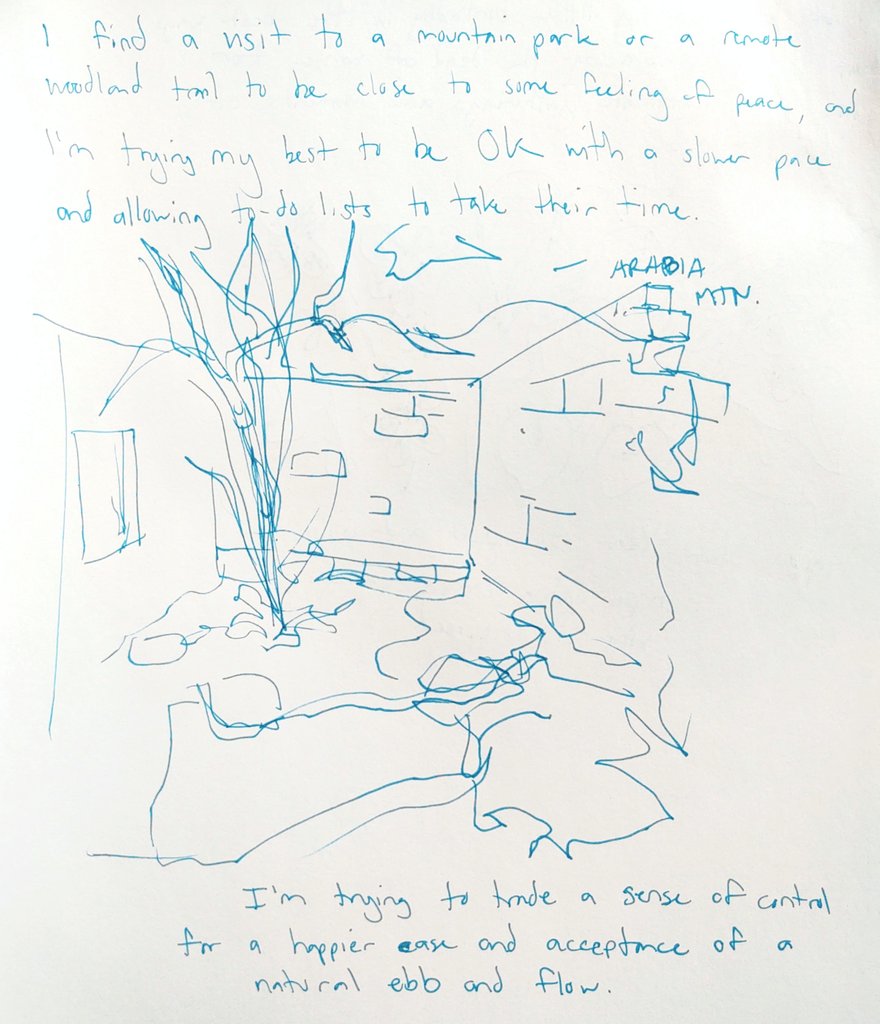 I find a visit to a mountain park or a remote
woodland trail to be close to some feeling of peace, and
I'm trying my best to be OK with a slower pace
and allowing to-do lists to take their time.
— ARABIA
MTN.
I'm trying to trade a sense of control
for a happier ease and acceptance of a
natural ebb and flow.